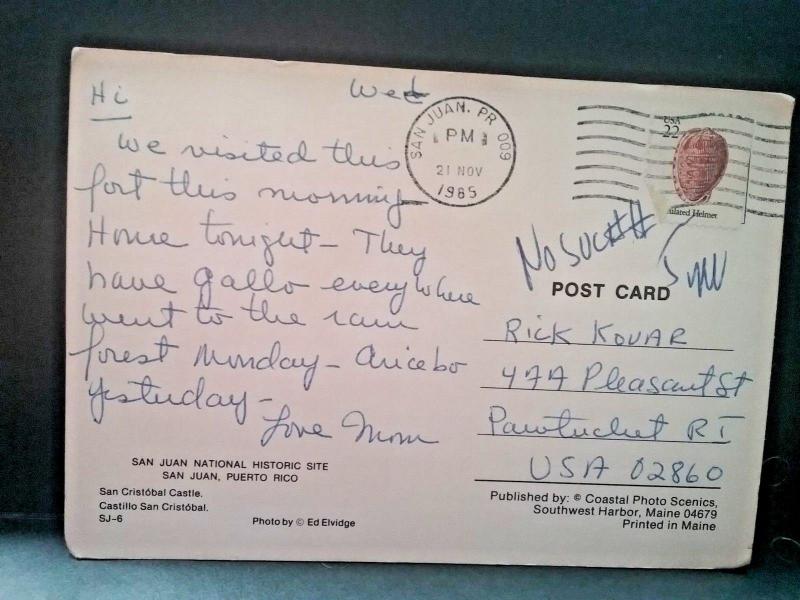 Hi
Wed
We visited this
fort this morning
Home tonight - They
have gallo everywhere
went to the rain
forest Monday - Aricebo
yesterday -
Love Mom
SAN JUAN NATIONAL HISTORIC SITE
SAN JUAN, PUERTO RICO
San Cristóbal Castle.
Castillo San Cristóbal.
SJ-6
Photo by © Ed Elvidge
SAN JUAN, PR 009
PM
21 NOV
1985
USA
22
ulated Helmet
No SUCH #
POST CARD
RICK KOVAR
47A Pleasant St
Pawtucket RI
USA 02860
Published by: © Coastal Photo Scenics,
Southwest Harbor, Maine 04679
Printed in Maine